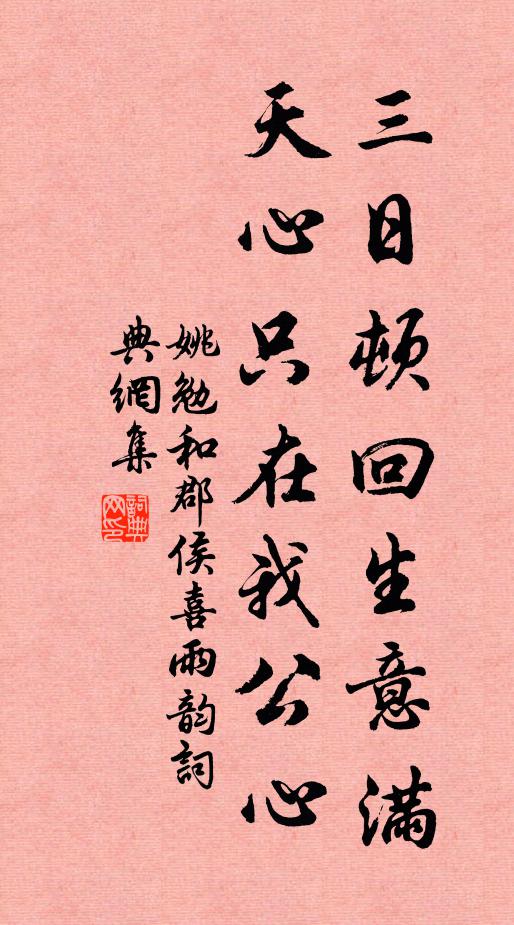 三日顿回生意满
天心只在我公心
姚勉和郡侯喜雨韵詞
典網集
詞典
网印